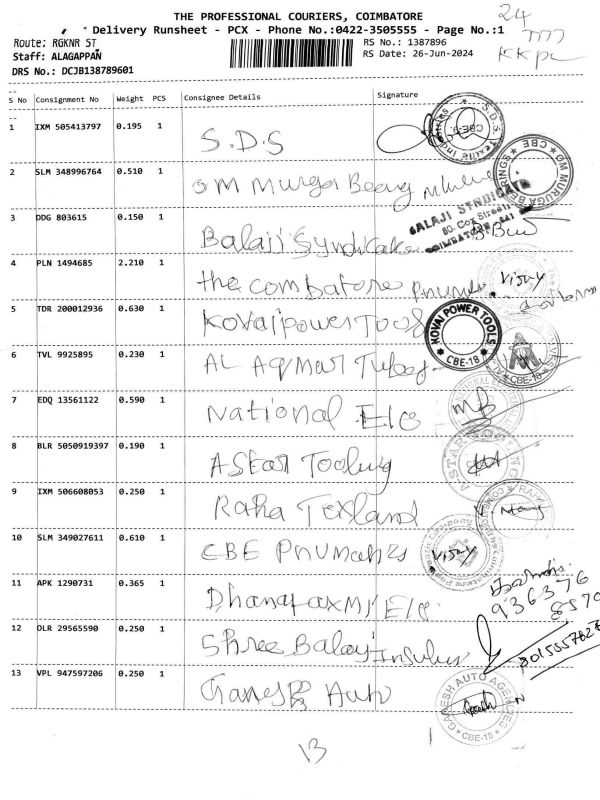 THE PROFESSIONAL COURIERS, COIMBATORE
Delivery Runsheet - PCX - Phone No.:0422-3505555 - Page No.:1
24
Route: RGKNR ST
RS No.: 1387896
Staff: ALAGAPPAN
RS Date: 26-Jun-2024
DRS No.: DCJB138789601
S No Consignment No Weight PCS Consignee Details Signature
1 IXM 505413797 0.195 1 S.D.S
2 SLM 348996764 0.510 1 OM Muruga
OM MURUGA BEARINGS CBE
3 DDG 803615 0.150 1 Balaji Syndicate
BALAJI SYNDICATE
80, Cox Street
4 PLN 1494685 2.210 1 the combatore Pnumes Vijay
5 TDR 200012936 0.630 1 Kovai power Tools
KOVAI POWER TOOLS CBE-18
6 TVL 9925895 0.230 1 AL Aqmar Tubes
CBE-18
7 EDQ 13561122 0.590 1 National E/C
8 BLR 5050919397 0.190 1 AStar Tooling
A-STAR TOOLING
9 IXM 506608053 0.250 1 Raha Texland
10 SLM 349027611 0.610 1 CBE Pnumatics Vijay
11 APK 1290731 0.365 1 Dhanalaxmi E/C
936376
8570
12 OLR 29565590 0.250 1 Shree Balaji Insulus
13 VPL 947597206 0.250 1 Ganesh Auto
GANESH AUTO AGENCIES CBE-18
13